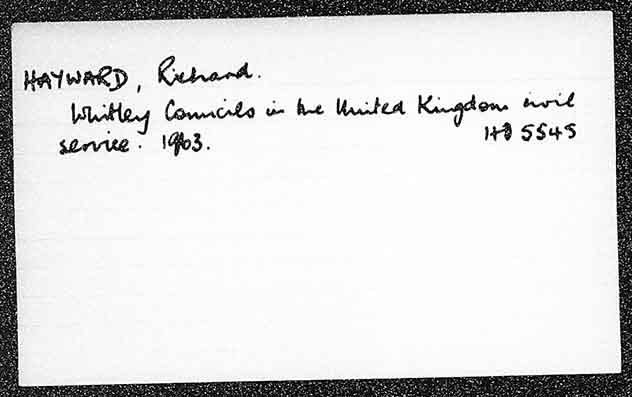 HAYWARD, Richard.
Whitley Councils in the United Kingdom civil
service. 1963.
HD 5545